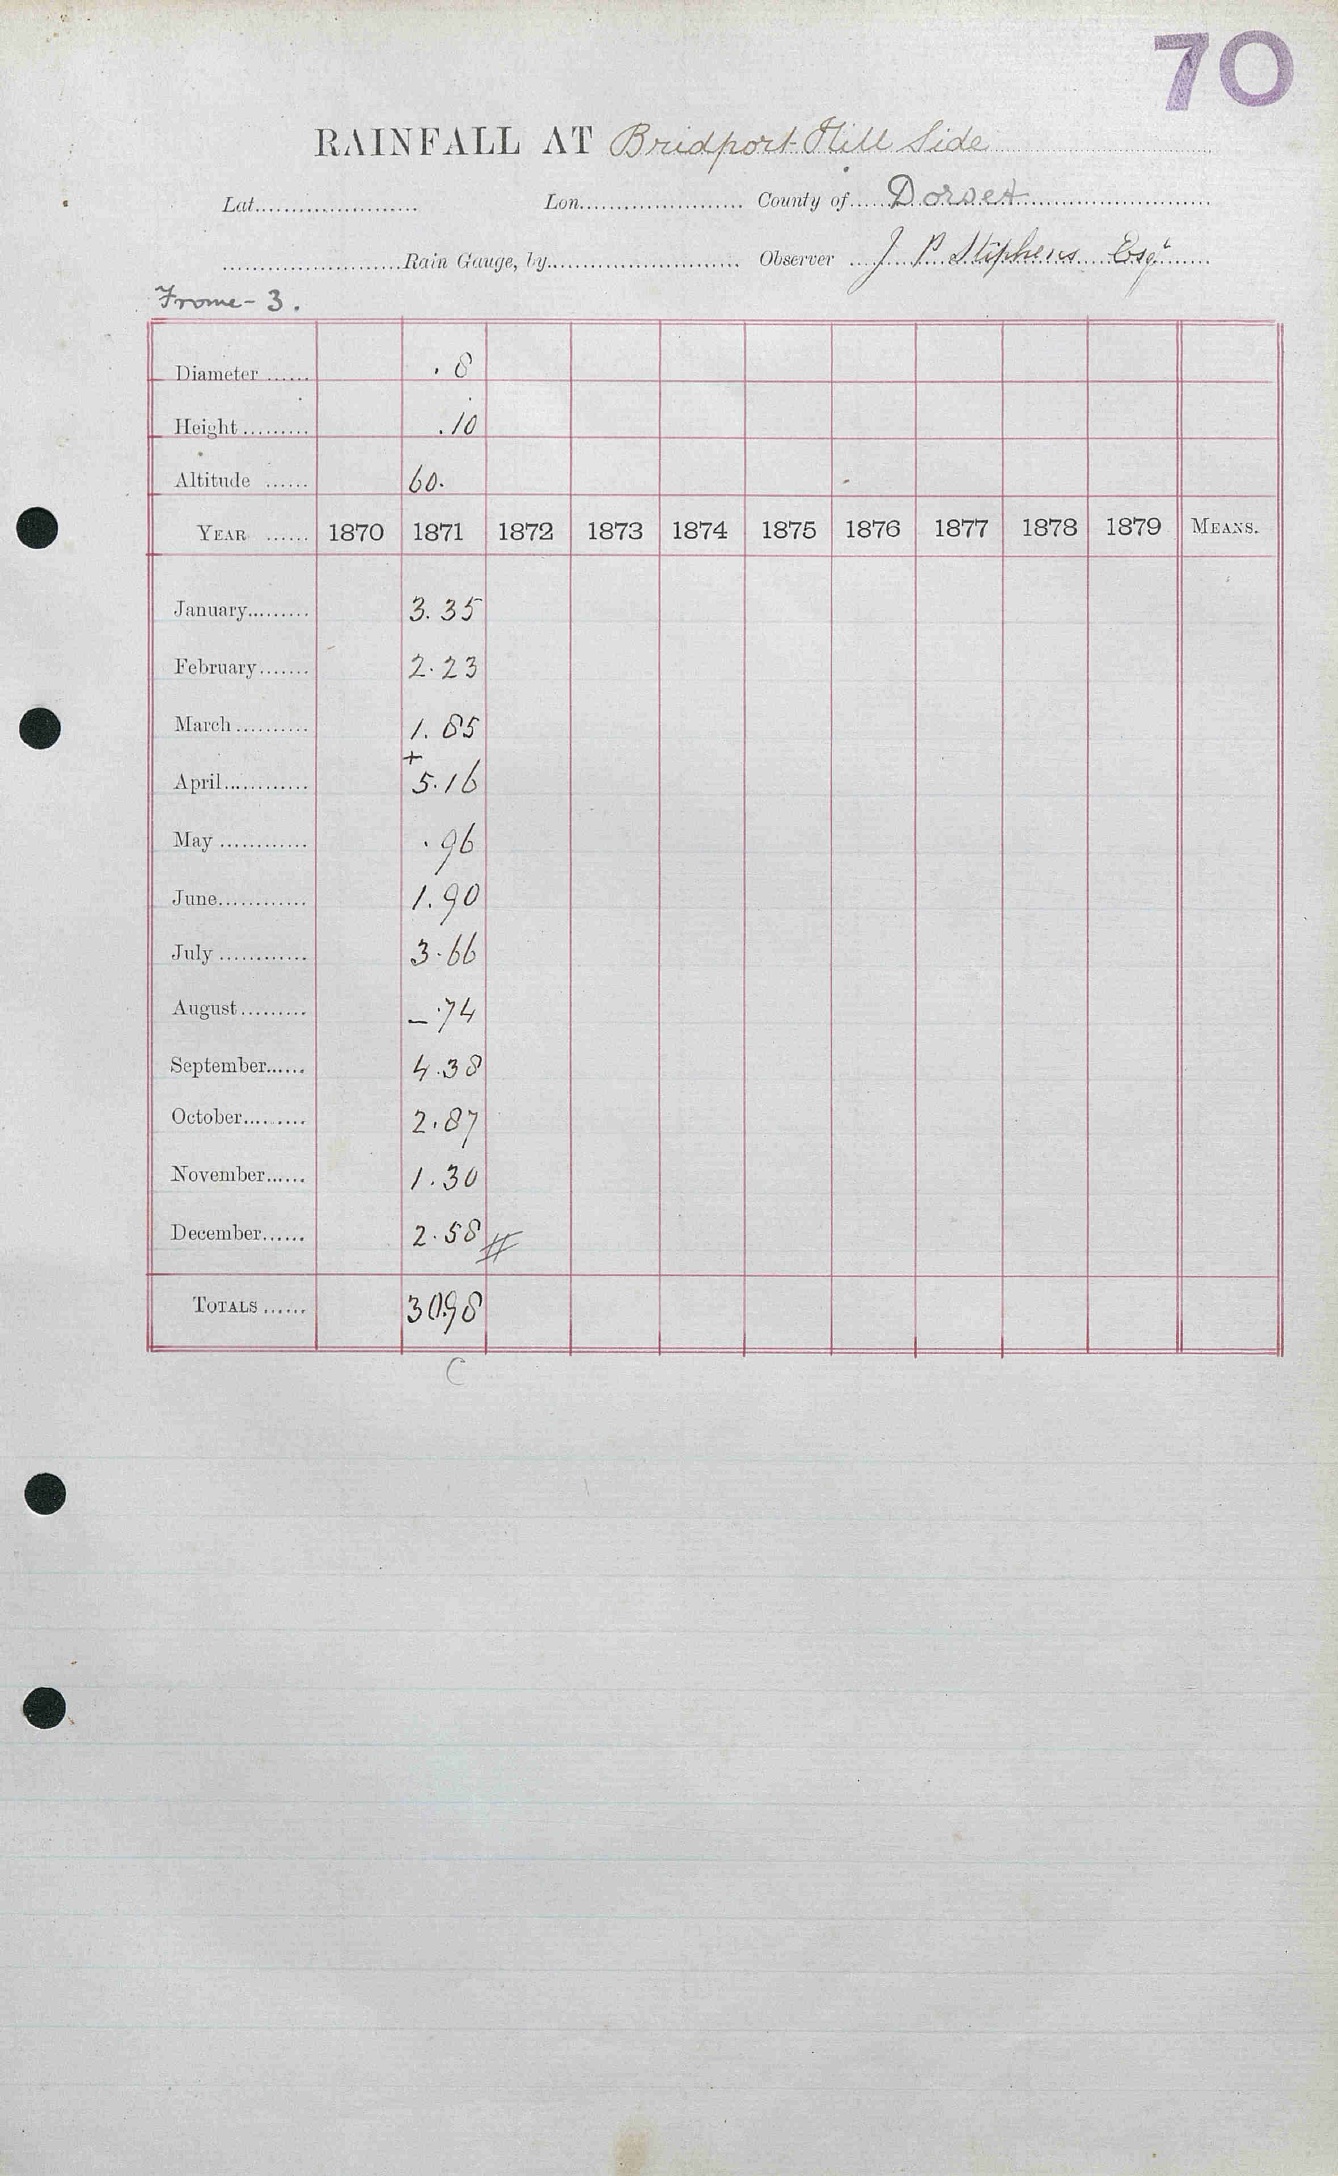 70
RAINFALL AT Bridport Hill Side
Lat. Lon. County of Dorset
Rain Gauge, by Observer J. P. Stephens Esqr
Frome - 3.
Diameter . 8
Height .10
Altitude 60.
YEAR 1870 1871 1872 1873 1874 1875 1876 1877 1878 1879 MEANS.
January 3.35
February 2.23
March 1.85
+
April 5.16
May .96
June 1.90
July 3.66
August – .74
September 4.38
October 2.87
November 1.30
December 2.58 #
TOTALS 30.98
C